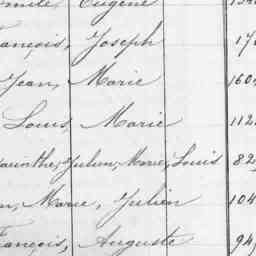 Emile, Eugène
François, Joseph 17
Jean, Marie 160
Louis, Marie 112
Hyacinthe, Julien, Marie, Louis 82
Marie, Julien 104
François, Auguste 94